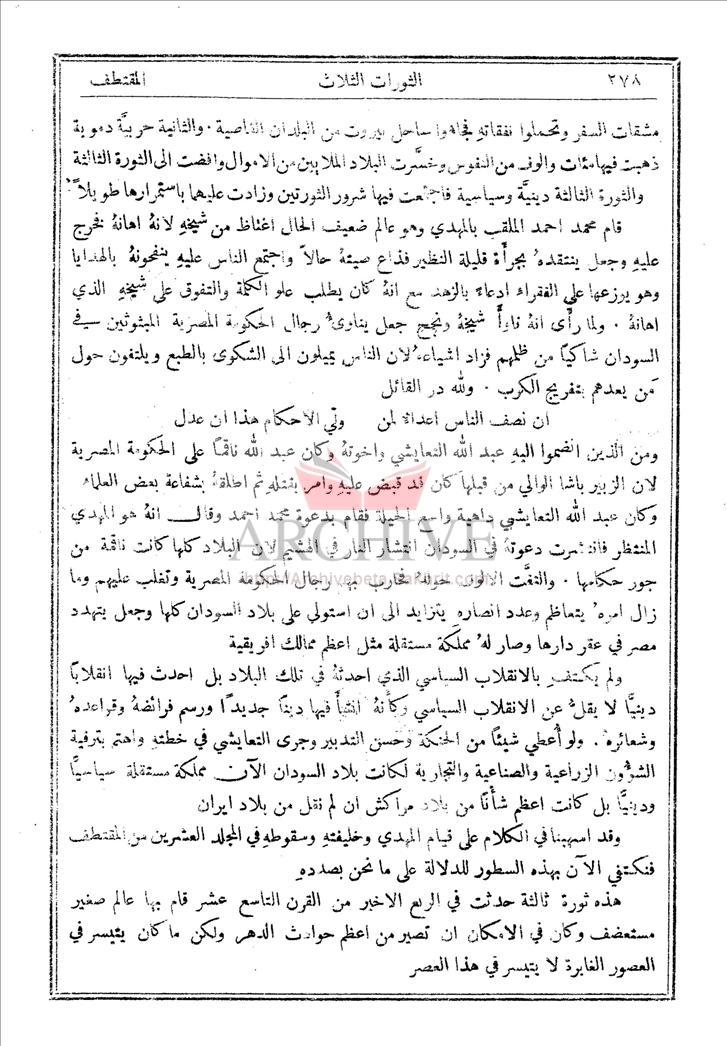 ٢٧٨ الثورات الثلاث المقتطف
مشقات السفر وتحملوا نفقاته فجاءوا ساحل بيروت من البلدان القاصية . والثانية حربيَّة دموية
ذهبت فيها مئات والوف من النفوس وخسَّرت البلاد الملايين من الاموال وافضت الى الثورة الثالثة
والثورة الثالثة دينيَّة وسياسية فاجتمعت فيها شرور الثورتين وزادت عليهما باستمرارها طويلاً
قام محمد احمد الملقب بالمهدي وهو عالم ضعيف الحال اغتاظ من شيخهِ لانهُ اهانهُ فخرج
عليهِ وجعل ينتقدهُ بجرأة قليلة النظير فذاع صيتهُ حالاً واجتمع الناس عليهِ ينفحونهُ بالهدايا
وهو يوزعها على الفقراء ادعاءً بالزهد مع انهُ كان يطلب علو الكلمة والتفوق على شيخهِ الذي
اهانهُ . ولما رأى انهُ ناوأ شيخهُ ونجح جعل يناوئ رجال الحكومة المصرية المبثوثين في
السودان شاكيًا من ظلمهم فزاد اشياعهُ لان الناس يميلون الى الشكوى بالطبع ويلتفون حول
مَن يعدهم بتفريج الكرب . ولله در القائل
ان نصف الناس اعداءٌ لمن ولي الاحكام هذا ان عدل
ومن الذين انضموا اليهِ عبد الله التعايشي واخوتهُ وكان عبد الله ناقمًا على الحكومة المصرية
لان الزبير باشا الوالي من قبلها كان قد قبض عليهِ وامر بقتلهِ ثم اطلقهُ بشفاعة بعض العلماء
وكان عبد الله التعايشي داهية واسع الحيلة فقام بدعوة محمد احمد وقال انهُ هو المهدي
المنتظر فانتشرت دعوتهُ في السودان انتشار النار في الهشيم لان البلاد كلها كانت ناقمة من
جور حكامها . والتفَّت الالوف حولهُ فحارب بهم رجال الحكومة المصرية وتغلب عليهم وما
زال امرهُ يتعاظم وعدد انصارهِ يتزايد الى ان استولى على بلاد السودان كلها وجعل يتهدد
مصر في عقر دارها وصار لهُ مملكة مستقلة مثل اعظم ممالك افريقية
ولم يكتفِ بالانقلاب السياسي الذي احدثهُ في تلك البلاد بل احدث فيها انقلابًا
دينيًّا لا يقلُّ عن الانقلاب السياسي وكأنهُ انشأ فيها دينًا جديدًا ورسم فرائضهُ وقواعدهُ
وشعائرهُ . ولو أُعطي شيئًا من الحنكة وحسن التدبير وجرى التعايشي في خطتهِ واهتم بترقية
الشؤون الزراعية والصناعية والتجارية لكانت بلاد السودان الآن مملكة مستقلة سياسيًّا
ودينيًّا بل كانت اعظم شأنًا من بلاد مراكش ان لم نقل من بلاد ايران
وقد اسهبنا في الكلام على قيام المهدي وخليفتهِ وسقوطهِ في المجلد العشرين من المقتطف
فنكتفي الآن بهذه السطور للدلالة على ما نحن بصددهِ
هذه ثورة ثالثة حدثت في الربع الاخير من القرن التاسع عشر قام بها عالم صغير
مستضعف وكان في الامكان ان تصير من اعظم حوادث الدهر ولكن ما كان يتيسر في
العصور الغابرة لا يتيسر في هذا العصر
ARCHIVE